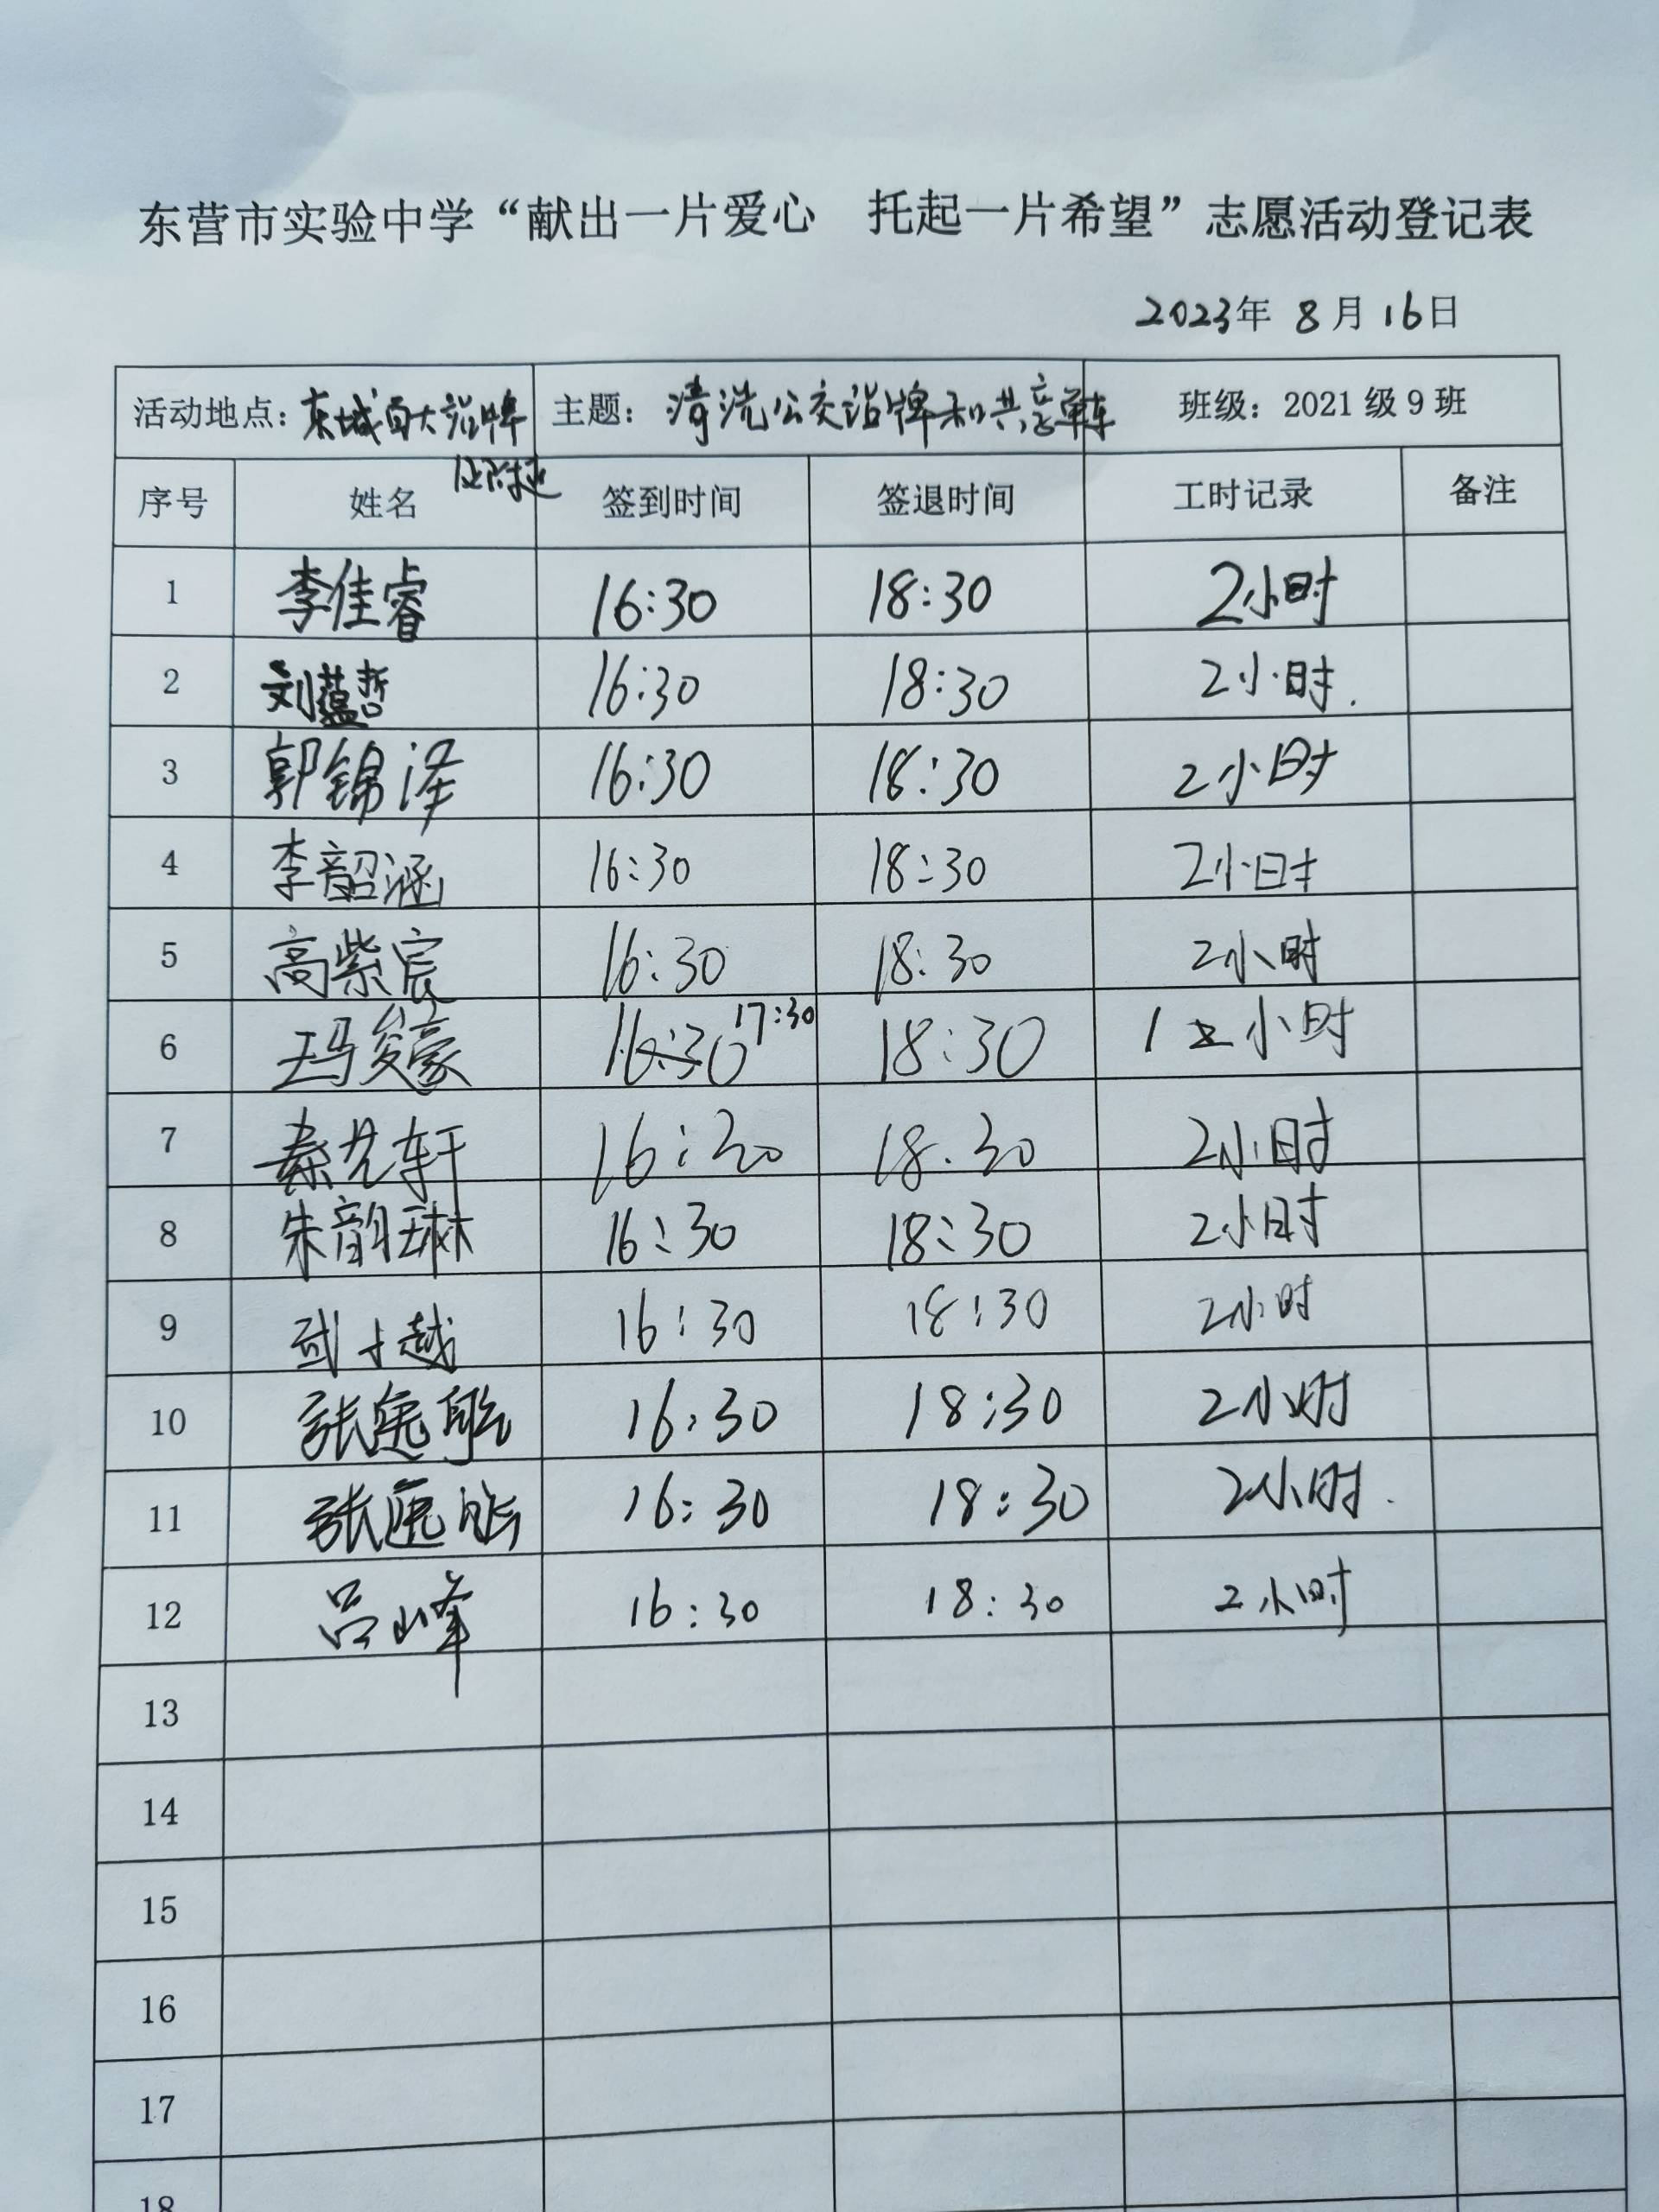 东营市实验中学“献出一片爱心 托起一片希望”志愿活动登记表
2023年 8月 16日
活动地点：东城百大站牌 及附近 主题：清洗公交站牌和共享单车 班级：2021级9班
序号 姓名 签到时间 签退时间 工时记录 备注
1 李佳睿 16:30 18:30 2小时
2 刘蕴哲 16:30 18:30 2小时.
3 郭锦泽 16:30 18:30 2小时
4 李韶涵 16:30 18:30 2小时
5 高紫宸 16:30 18:30 2小时
6 16:30 17:30 18:30 1 小时
7 秦艺轩 16:30 18:30 2小时
8 朱韵琳 16:30 18:30 2小时
9 越 16:30 18:30 2小时
10 张 16:30 18:30 2小时
11 张 16:30 18:30 2小时.
12 吕峰 16:30 18:30 2小时
13
14
15
16
17
18